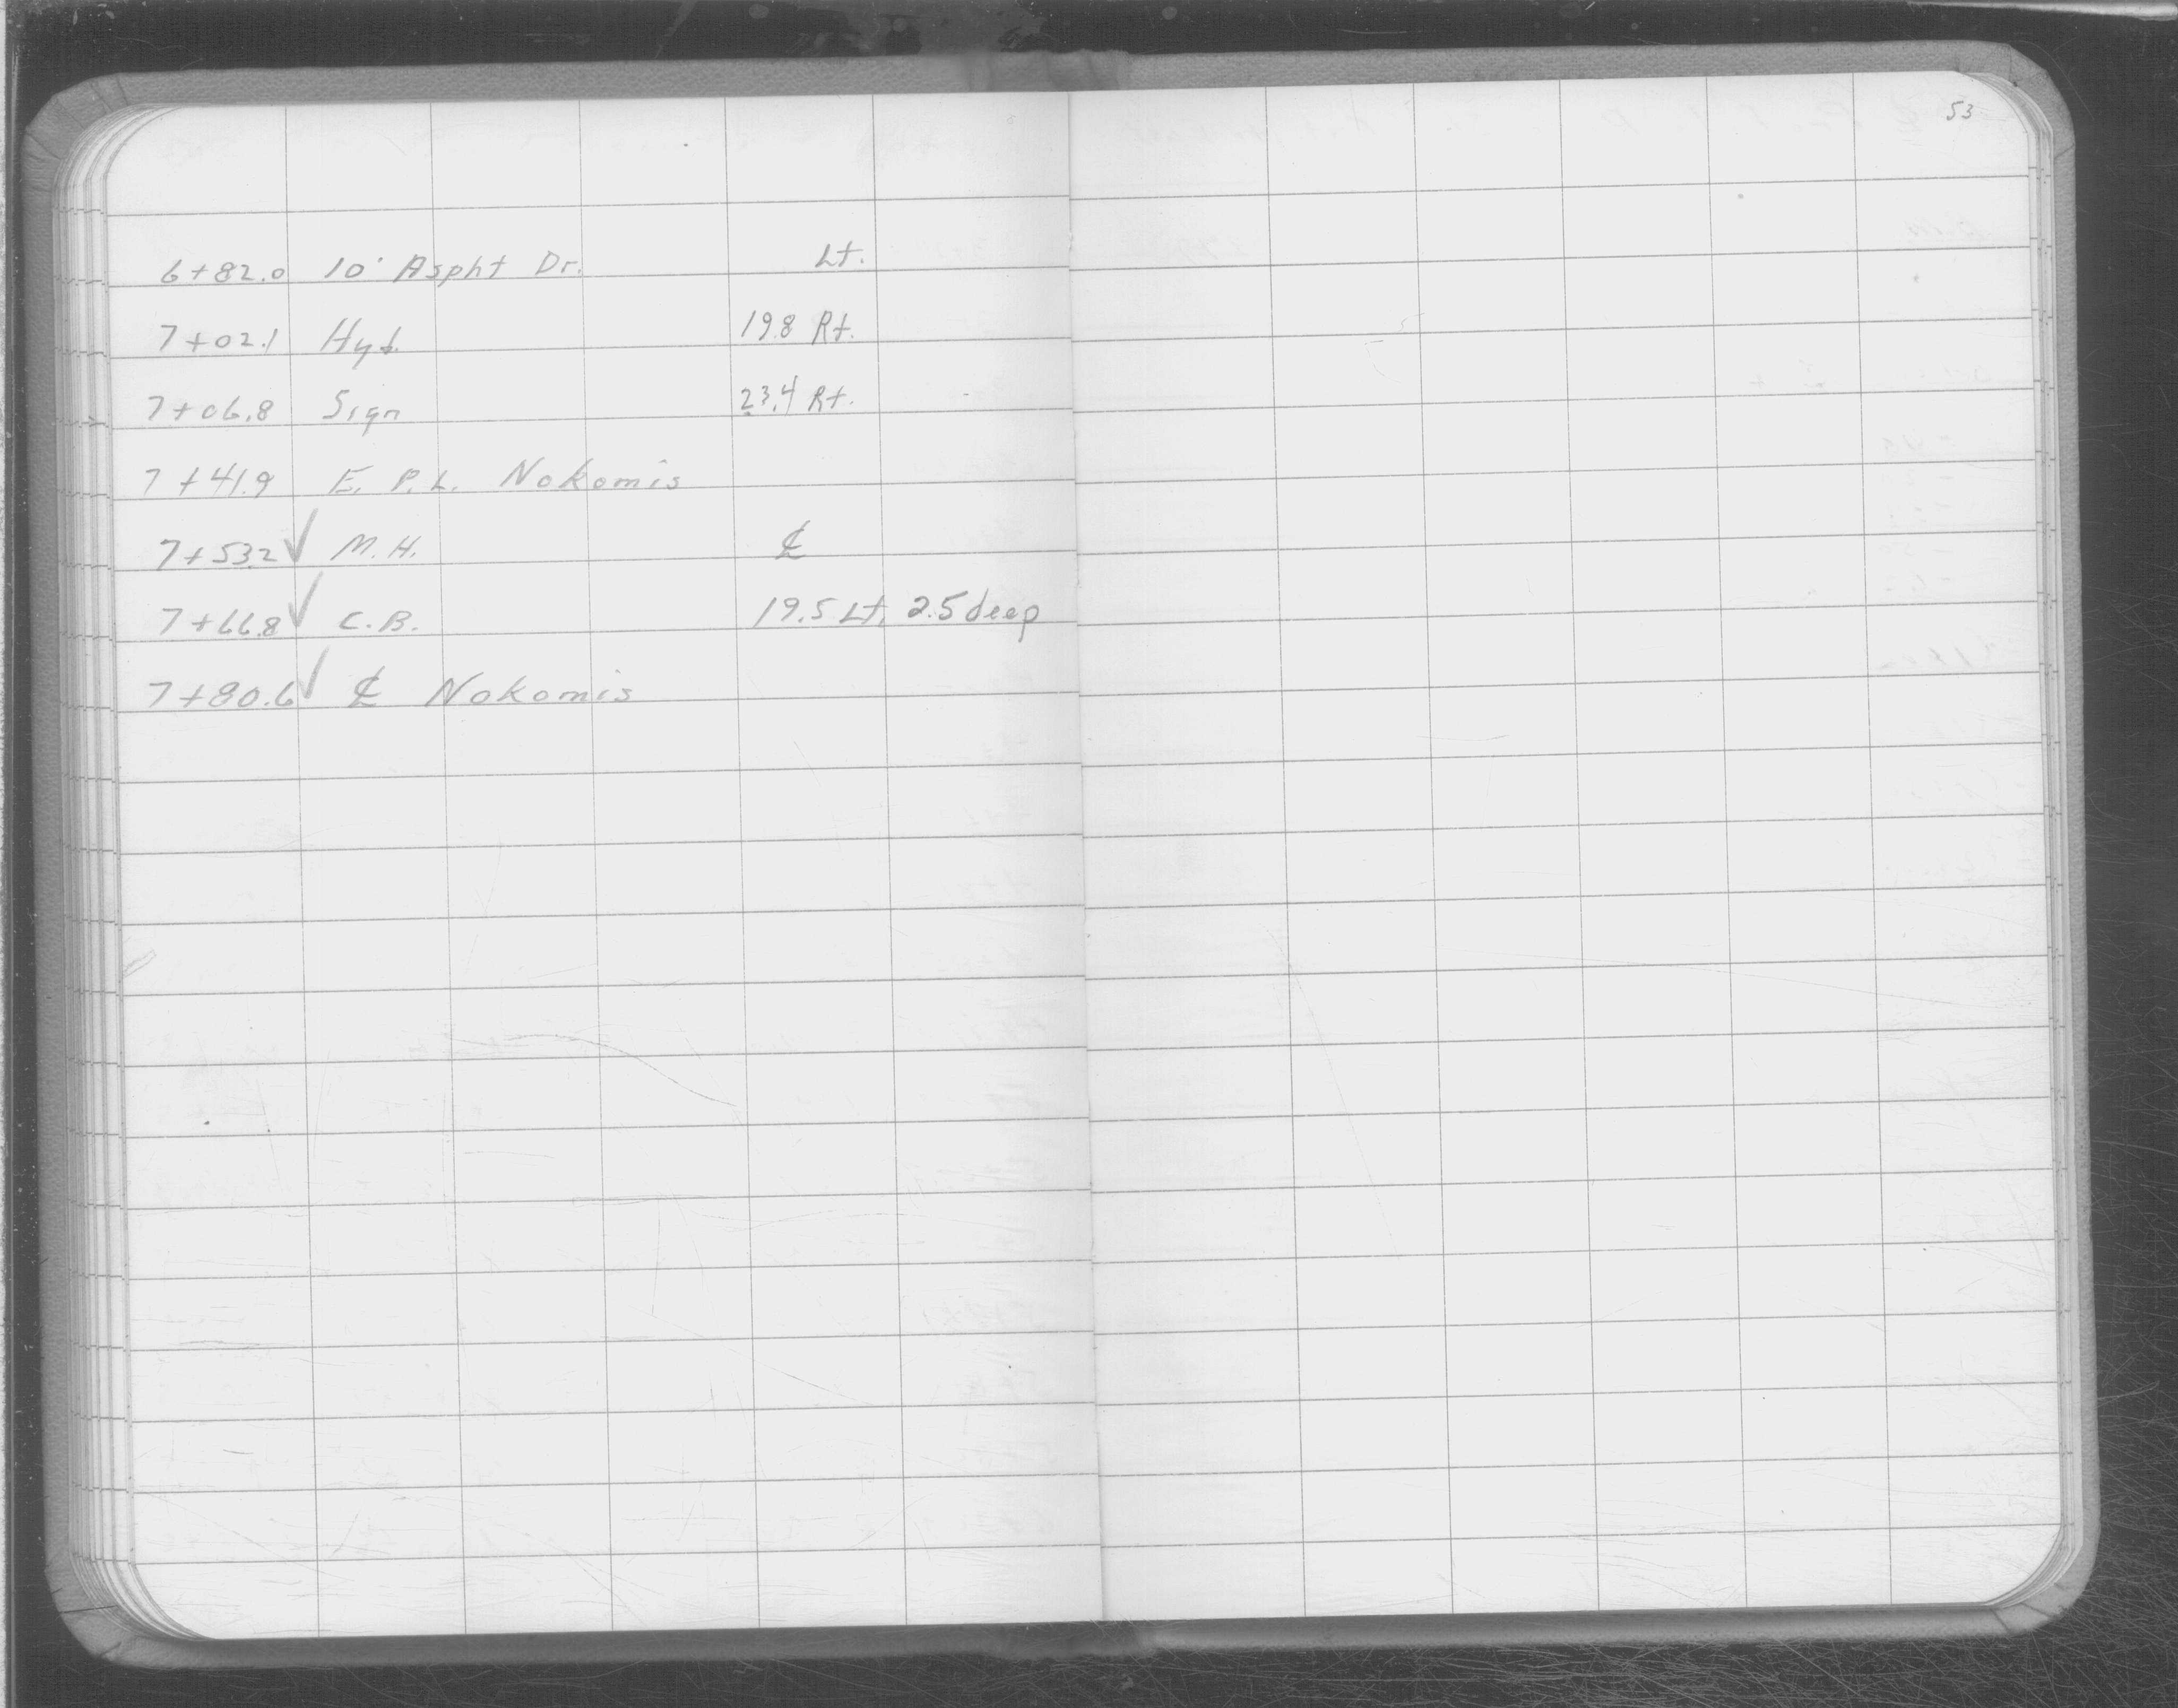 53
6+82.0 10' Aspht Dr. Lt.
7+02.1 Hyd. 19.8 Rt.
7+06.8 Sign 23.4 Rt.
7+41.9 E. P.L. Nokomis
7+53.2 ✓ M.H. ℄
7+66.8 ✓ C.B. 19.5 Lt. 2.5 deep
7+80.6 ✓ ℄ Nokomis